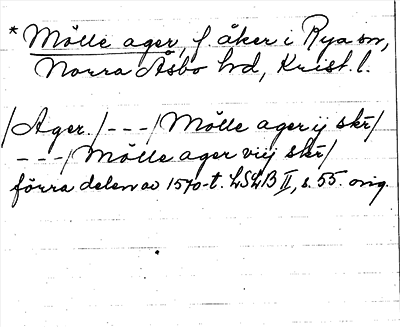 * Mölle ager, f. åker i Rya sn,
Norra Åsbo hd, Krist. l.
/Ager./---/Mölle ager ij skr/
---/Mölle ager viij skr/
förra delen av 1570-t. LSLB II, s. 55. orig.